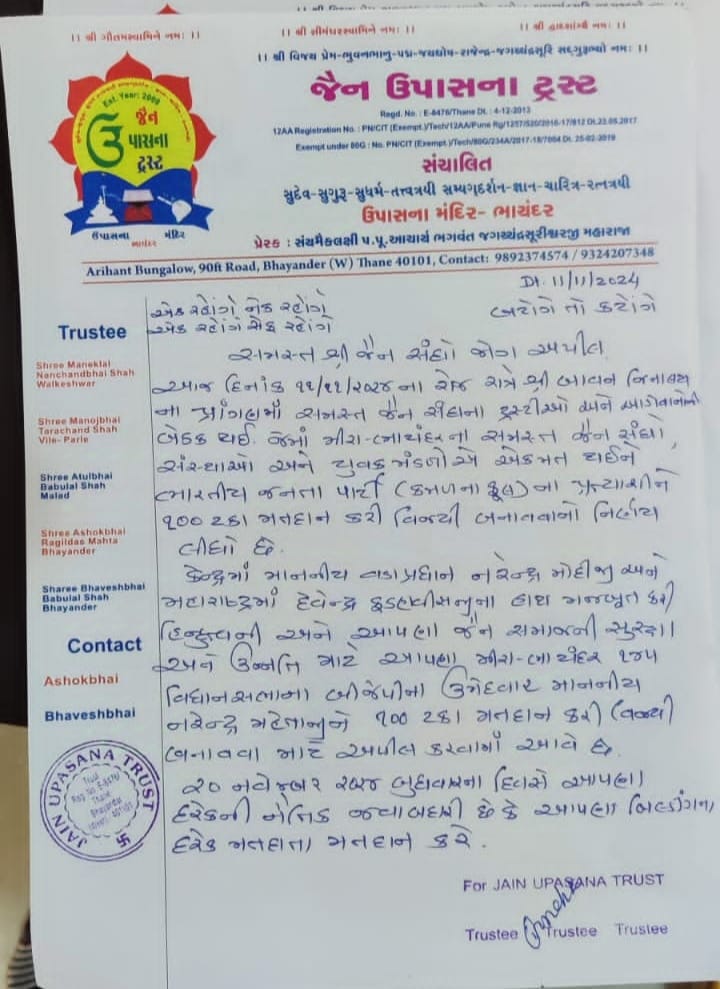 ।। શ્રી ગૌતમસ્વામિને નમઃ ।।
।। શ્રી સીમંધરસ્વામિને નમઃ ।।
।। શ્રી વિજય પ્રેમ-ભુવનભાનુ-પદ્મ-જયઘોષ-રાજેન્દ્ર-જગચ્ચંદ્રસૂરિ સદ્ગુરૂભ્યો નમઃ ।।
જૈન ઉપાસના ટ્રસ્ટ
Regd. No. : E-8476/Thane Dt. : 4-12-2013
12AA Registration No. : PN/CIT (Exempt.)/Tech/12AA/Pune Rg/1257/520/2016-17/812 Dt.23.05.2017
Exempt under 80G : No. PN/CIT (Exempt.)/Tech/80G/234A/2017-18/7064 Dt. 25-02-2019
Est. Year: 2009
ઉ
જૈન
પાસના
ટ્રસ્ટ
ઉપાસના મંદિર
ભાયંદર
સંચાલિત
સુદેવ-સુગુરૂ-સુધર્મ-તત્ત્વત્રયી સમ્યગ્દર્શન-જ્ઞાન-ચારિત્ર-રત્નત્રયી
ઉપાસના મંદિર- ભાયંદર
પ્રેરક : સંયમૈકલક્ષી પ.પૂ.આચાર્ય ભગવંત જગચ્ચંદ્રસૂરીશ્વરજી મહારાજા
Arihant Bungalow, 90ft Road, Bhayander (W) Thane 40101, Contact: 9892374574 / 9324207348
Dt. 11/11/2024
એક રહોંગે નેક રહોંગે
બટોગે તો કટોગે
એક રહોંગે સેફ રહોંગે
સમસ્ત શ્રી જૈન સંઘો જોગ અપીલ
આજ દિનાંક ૧૧/૧૧/૨૦૨૪ ના રોજ રાત્રે શ્રી બાવન જિનાલય
ના પ્રાંગણમાં સમસ્ત જૈન સંઘના ટ્રસ્ટીઓ અને આગેવાનોની
બેઠક થઈ. જેમાં મીરા-ભાયંદરના સમસ્ત જૈન સંઘો,
સંસ્થાઓ અને યુવક મંડળોએ એકમત થઈને
ભારતીય જનતા પાર્ટી (કમળના ફૂલ) ના પ્રત્યાશીને
૧૦૦ ટકા મતદાન કરી વિજયી બનાવવાનો નિર્ણય
લીધો છે.
કેન્દ્રમાં માનનીય વડાપ્રધાન નરેન્દ્ર મોદીજી અને
મહારાષ્ટ્રમાં દેવેન્દ્ર ફડણવીસજીના હાથ મજબૂત કરી
હિન્દુત્વની અને આપણા જૈન સમાજની સુરક્ષા
અને ઉન્નતિ માટે આપણા મીરા-ભાયંદર ૧૪૫
વિધાનસભાના બીજેપીના ઉમેદવાર માનનીય
નરેન્દ્ર મહેતાજીને ૧૦૦ ટકા મતદાન કરી વિજયી
બનાવવા માટે અપીલ કરવામાં આવે છે.
૨૦ નવેમ્બર ૨૦૨૪ બુધવારના દિવસે આપણા
દરેકની નૈતિક જવાબદારી છે કે આપણા બિલ્ડીંગના
દરેક મતદાતા મતદાન કરે.
Trustee
Shree Maneklal
Nanchandbhai Shah
Walkeshwar
Shree Manojbhai
Tarachand Shah
Vile- Parle
Shree Atulbhai
Babulal Shah
Malad
Shree Ashokbhai
Ragildas Mahta
Bhayander
Sharee Bhaveshbhai
Babulal Shah
Bhayander
Contact
Ashokbhai
Bhaveshbhai
JAIN UPASANA TRUST
For JAIN UPASANA TRUST
Trustee Trustee Trustee